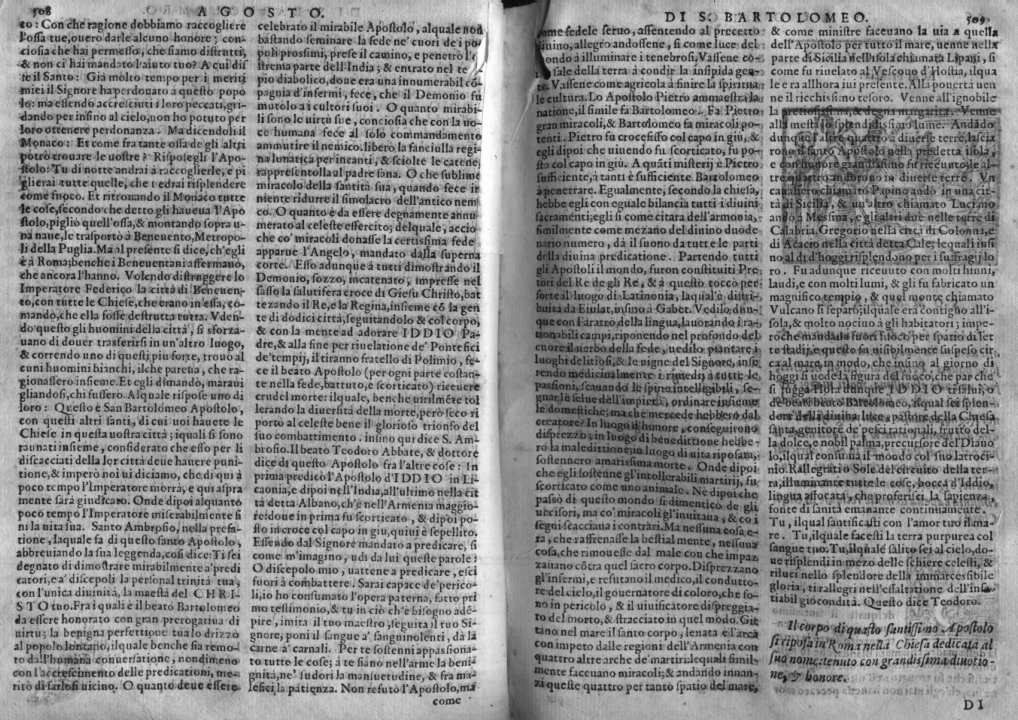 508 AGOSTO.
to: Con che ragione dobbiamo raccogliere
l'ossa tue, ouero darle alcuno honore; con-
ciosia che hai permesso, che siamo distrutti,
& non ci hai mandato l'aiuto tuo? A cui dis
se il Santo: Già molto tempo per i meriti
miei il Signore ha perdonato a questo popo
lo: ma essendo accresciuti i loro peccati, gri-
dando per infino al cielo, non ho potuto per
loro ottenere perdonanza. Ma dicendoli il
Monaco: Et come fra tante ossa de gli altri
potrò trouare le uostre? Risposegli l'Apo-
stolo: Tu di notte andrai a raccoglierle, e pi
glierai tutte quelle, che tu edrai risplendere
come fuoco. Et ritronando il Monaco tutte
le cose, secondo che detto gli haueua l'Apo
stolo, pigliò quell'ossa, & montando sopra u-
na naue, le trasportò a Beneuento, Metropo-
li della Puglia. Ma al presente si dice, ch'egli
è à Roma; benche i Beneuentani affermano,
che ancora l'hanno. Volendo distruggere lo
Imperatore Federico la città di Beneuen-
to, con tutte le Chiese, che erano in essa, co-
mandò, che ella fosse destrutta tutta. Vden-
do questo gli huomini della città, si sforza-
uano di douer trasferirsi in un'altro luogo,
& correndo uno di questi piu forte, trouo al
cuni huomini bianchi, ilche pareua, che ra-
gionassero insieme. Et egli dimandò, maraui
gliandosi, chi fussero. Al quale rispose uno di
loro: Questo è San Bartolomeo Apostolo,
con questi altri santi, di cui uoi hauete le
Chiese in questa uostra città; iquali si sono
raunati insieme, considerato che esso per li
discacciati della lor città deue hauere puni-
tione, & imperò noi ui diciamo, che di qui à
poco tempo l'Imperatore morrà, e qui aspra
mente sarà giudicato. Onde dipoi alquanto
poco tempo l'Imperatore miserabilmente fi
ni la uita sua. Santo Ambrosio, nella prefa-
tione, laquale fa di questo santo Apostolo,
abbreuiando la sua leggenda, così dice: Ti sei
degnato di dimostrare mirabilmente a' predi
catori, e a' discepoli la personal trinità tua,
con l'unica diuinità, la maestà del CHRI-
STO tuo. Fra i quali e il beato Bartolomeo
da essere honorato con gran prerogatiua di
uirtu; la benigna perfettione tua lo drizzò
al popolo lontano, ilquale benche sia remo-
to dall'humana conuersatione, nondimeno
con l'accrescimento delle predicationi, me-
ritò di farlosi uicino. O quanto deue essere
celebrato il mirabile Apostolo, alquale non
bastando seminare la fede ne' cuori de i po
poli prossimi, prese il camino, e penetrò l'e
strema parte dell'India; & entrato nel te-
pio diabolico, doue era una innumerabil cō-
pagnia d'infermi, fece, che il Demonio fu
mutolo a i cultori suoi. O quanto mirabi-
li sono le uirtù sue, conciosia che con la uo-
ce humana fece al solo commandamento
ammutire il nemico. liberò la fanciulla regi
na lunatica per incanti, & sciolte le catene,
rappresentolla al padre sana. O che sublime
miracolo della santità sua, quando fece ir
niente ridurre il simolacro dell'antico nem
co. O quanto è da essere degnamente annu
merato al celeste essercito; delquale, accio
che co' miracoli donasse la certissima fede
apparue l'Angelo, mandato dalla superna
corte. Esso adunque a tutti dimostrando il
Demonio, sozzo, incatenato, impresse nel
sasso la salutifera croce di Giesu Christo, bat
tezando il Re, e la Regina, insieme cō la gen
te di dodici città, seguitandolo & col corpo,
& con la mente ad adorare IDDIO Pa-
dre, & alla fine per riuelatione de' Pontefici
de' tempij, il tiranno fratello di Polimio, fe-
ce il beato Apostolo (per ogni parte costan-
te nella fede, battuto, e scorticato) riceuere
crudel morte: ilquale, benche uirilmēte tol
lerando la diuersità della morte, però seco ri
portò al celeste bene il glorioso trionfo del
suo combattimento. insino qui dice S. Am-
brosio. Il beato Teodoro Abbate, & dottore
dice di questo Apostolo fra l'altre cose: In
prima predicò l'Apostolo d'IDDIO in Li
caonia, e dipoi nell'India, all'ultimo nella cit
tà detta Albano, ch'è nell'Armenia maggio-
re, doue in prima fu scorticato, & dipoi po-
sto in croce col capo in giu, qui ui è sepellito.
Essendo dal Signore mandato a predicare, si
come m'imagino, udì da lui queste parole:
O discepolo mio, uattene à predicare, esci
fuori à combattere. Sarai capace de' perico-
li, io ho consumato l'opera paterna, fatto pri
mo testimonio, & tu in ciò ch'è bisogno adē-
pire, imita il tuo maestro, seguita il tuo Si-
gnore, poni il sangue a' sanguinolenti, dà la
carne a' carnali. Per te sostenni appassiona-
to tutte le cose; à te siano nell'arme la beni-
gnità, ne' sudori la mansuetudine, & fra ma-
lefici la patienza. Non refutò l'Apostolo, ma
come
DI S. BARTOLOMEO. 509
come fedele seruo, assentendo al precetto
diuino, allegro andossene, si come luce del
mondo à illuminare i tenebrosi. Vassene co-
me sale della terra à condir la insipida gen-
te. Vassene come agricola à finire la spiritua
le cultura. Lo Apostolo Pietro ammaestra la
natione, il simile fa Bartolomeo. Fa Pietro
gran miracoli, & Bartolomeo fa miracoli po-
tenti. Pietro fu crocefisso col capo in giu, &
egli dipoi che uiuendo fu scorticato, fu po-
sto col capo in giu. A quāti misterij è Pietro
sufficiente, à tanti è sufficiente Bartolomeo
à penetrare. Egualmente, secondo la chiesa,
hebbe egli con eguale bilancia tutti i diuini
sacramenti; egli si come citara dell'armonia,
similmente come mezano del diuino duode
nario numero, dà il suono da tutte le parti
della diuina predicatione. Partendo tutti
gli Apostoli il mondo, furon constituiti Pre
tori del Re de gli Re, & à questo toccò per
sorte il luogo di Latinonia, laqual'è distri-
buita da Eiulat, insino à Gabet. Vedilo dun-
que con l'aratro della lingua, laurando i ra-
tionabili campi, riponendo nel profondo del
cuore il uerbo della fede, uedilo piantare i
luoghi delitiosi, & le uigne del Signore, inse
rendo medicinalmente i rimedij a tutte le
passioni, scauando le spine intelligibili, se-
gnar le selue dell'impietà, ordinare insieme
le domestiche: ma che mercede hebbero dal
creatore? In luogo d'honore, conseguirono
disprezzo; in luogo di benedittione hebbe-
ro la malèdittione; in luogo di uita riposata,
sostennero amarissima morte. Onde dipoi
che egli sostenne gli intollerabili martirij, fu
scorticato come uno animale. Ne dipoi che
passò di questo mondo si dimenticò de gli
uccisori, ma co' miracoli gl'inuitaua, & co i
segni scacciaua i contrari. Ma nessuna cosa e-
ra, che raffrenasse la bestial mente, nessuna
cosa, che rimouesse dal male con che impaz
zaitano cōtra quel sacro corpo. Disprezzano
gl'infermi, e refutano il medico, il condutto-
re del cielo, il gouernatore di coloro, che so-
no in pericolo, & il uiuificatore dispreggia-
to del morto, & stracciato in quel modo. Git
tano nel mare il santo corpo, leuata e l'arca
con impeto dalle regioni dell'Armenia con
quattro altre arche de' martiri: lequali simil-
mente faceuano miracoli; & andando innan-
zi queste quattro per tanto spatio del mare,
& come ministre faceuano la uia a quella
dell'Apostolo per tutto il mare, uenne nella
parte di Sicilia nell'isola chiamata Lipani, si
come fu riuelato al Vescouo d'Hostia, ilqua
le era allhora iui presente. Alla pouertà uen
ne il ricchissimo tesoro. Venne all'ignobile
la pretiosissima, & degna margarita. Venne
alla mesta lo splendidissimo lume. Andādo
dunque l'altre quattro a diuerse terre, lascia
rono il santo Apostolo nella predetta isola,
e con honore grandissimo fu riceuuto; le al-
tre quattro andorono in diuerse terre. Vn
caualiero chiamato Papino andò in una cit-
tà di Sicilia, & un'altro chiamato Luciano
andò a Messina, e gli altri due nelle terre di
Calabria. Gregorio nella città di Colonna, e
di Acacio nella città detta Cale; lequali insi
no al dì d'hoggi risplendono per i suffragij lo
ro. Fu adunque riceuuto con molti hinni,
laudi, e con molti lumi, & gli fu fabricato un
magnifico tempio, & quel monte chiamato
Vulcano si separò; ilquale era contiguo all'i-
sola, & molto nociuo à gli habitatori; impe-
roche mandaua fuori fuoco per spatio di set
te stadij, e questo fu uisibilmente suspeso cir
ca al mare, in modo, che infino al giorno di
hoggi si uede la figura del fuoco, che par che
si fugga. Hora dunque IDDIO ti salui, o
de beati beato Bartolomeo, ilqual sei splen-
dore della diuina luce, pastore della Chiesa
santa, genitore de' pesci rationali, frutto del-
la dolce, e nobil palma, precursore del Diauo
lo, ilqual consuma il mondo col suo latroci-
nio. Rallegrati o Sole del circuito della ter-
ra, illuminante tutte le cose, bocca d'Iddio,
lingua affocata, che proferisci la sapienza,
fonte di sanità emanante continuamente.
Tu, ilqual santificasti con l'amor tuo il ma-
re. Tu, ilquale facesti la terra purpurea col
sangue tuo. Tu, ilquale salito sei al cielo, do-
ue risplendi in mezo delle schiere celesti, &
riluci nello splendore della immarcessibile
gloria, ti allegri nell'essaltatione dell'insa-
tiabil giocondità. Questo dice Teodoro.
Il corpo di questo santissimo Apostolo
si riposa in Roma nella Chiesa dedicata al
suo nome: tenuto con grandissima diuotio-
ne, & honore.
DI